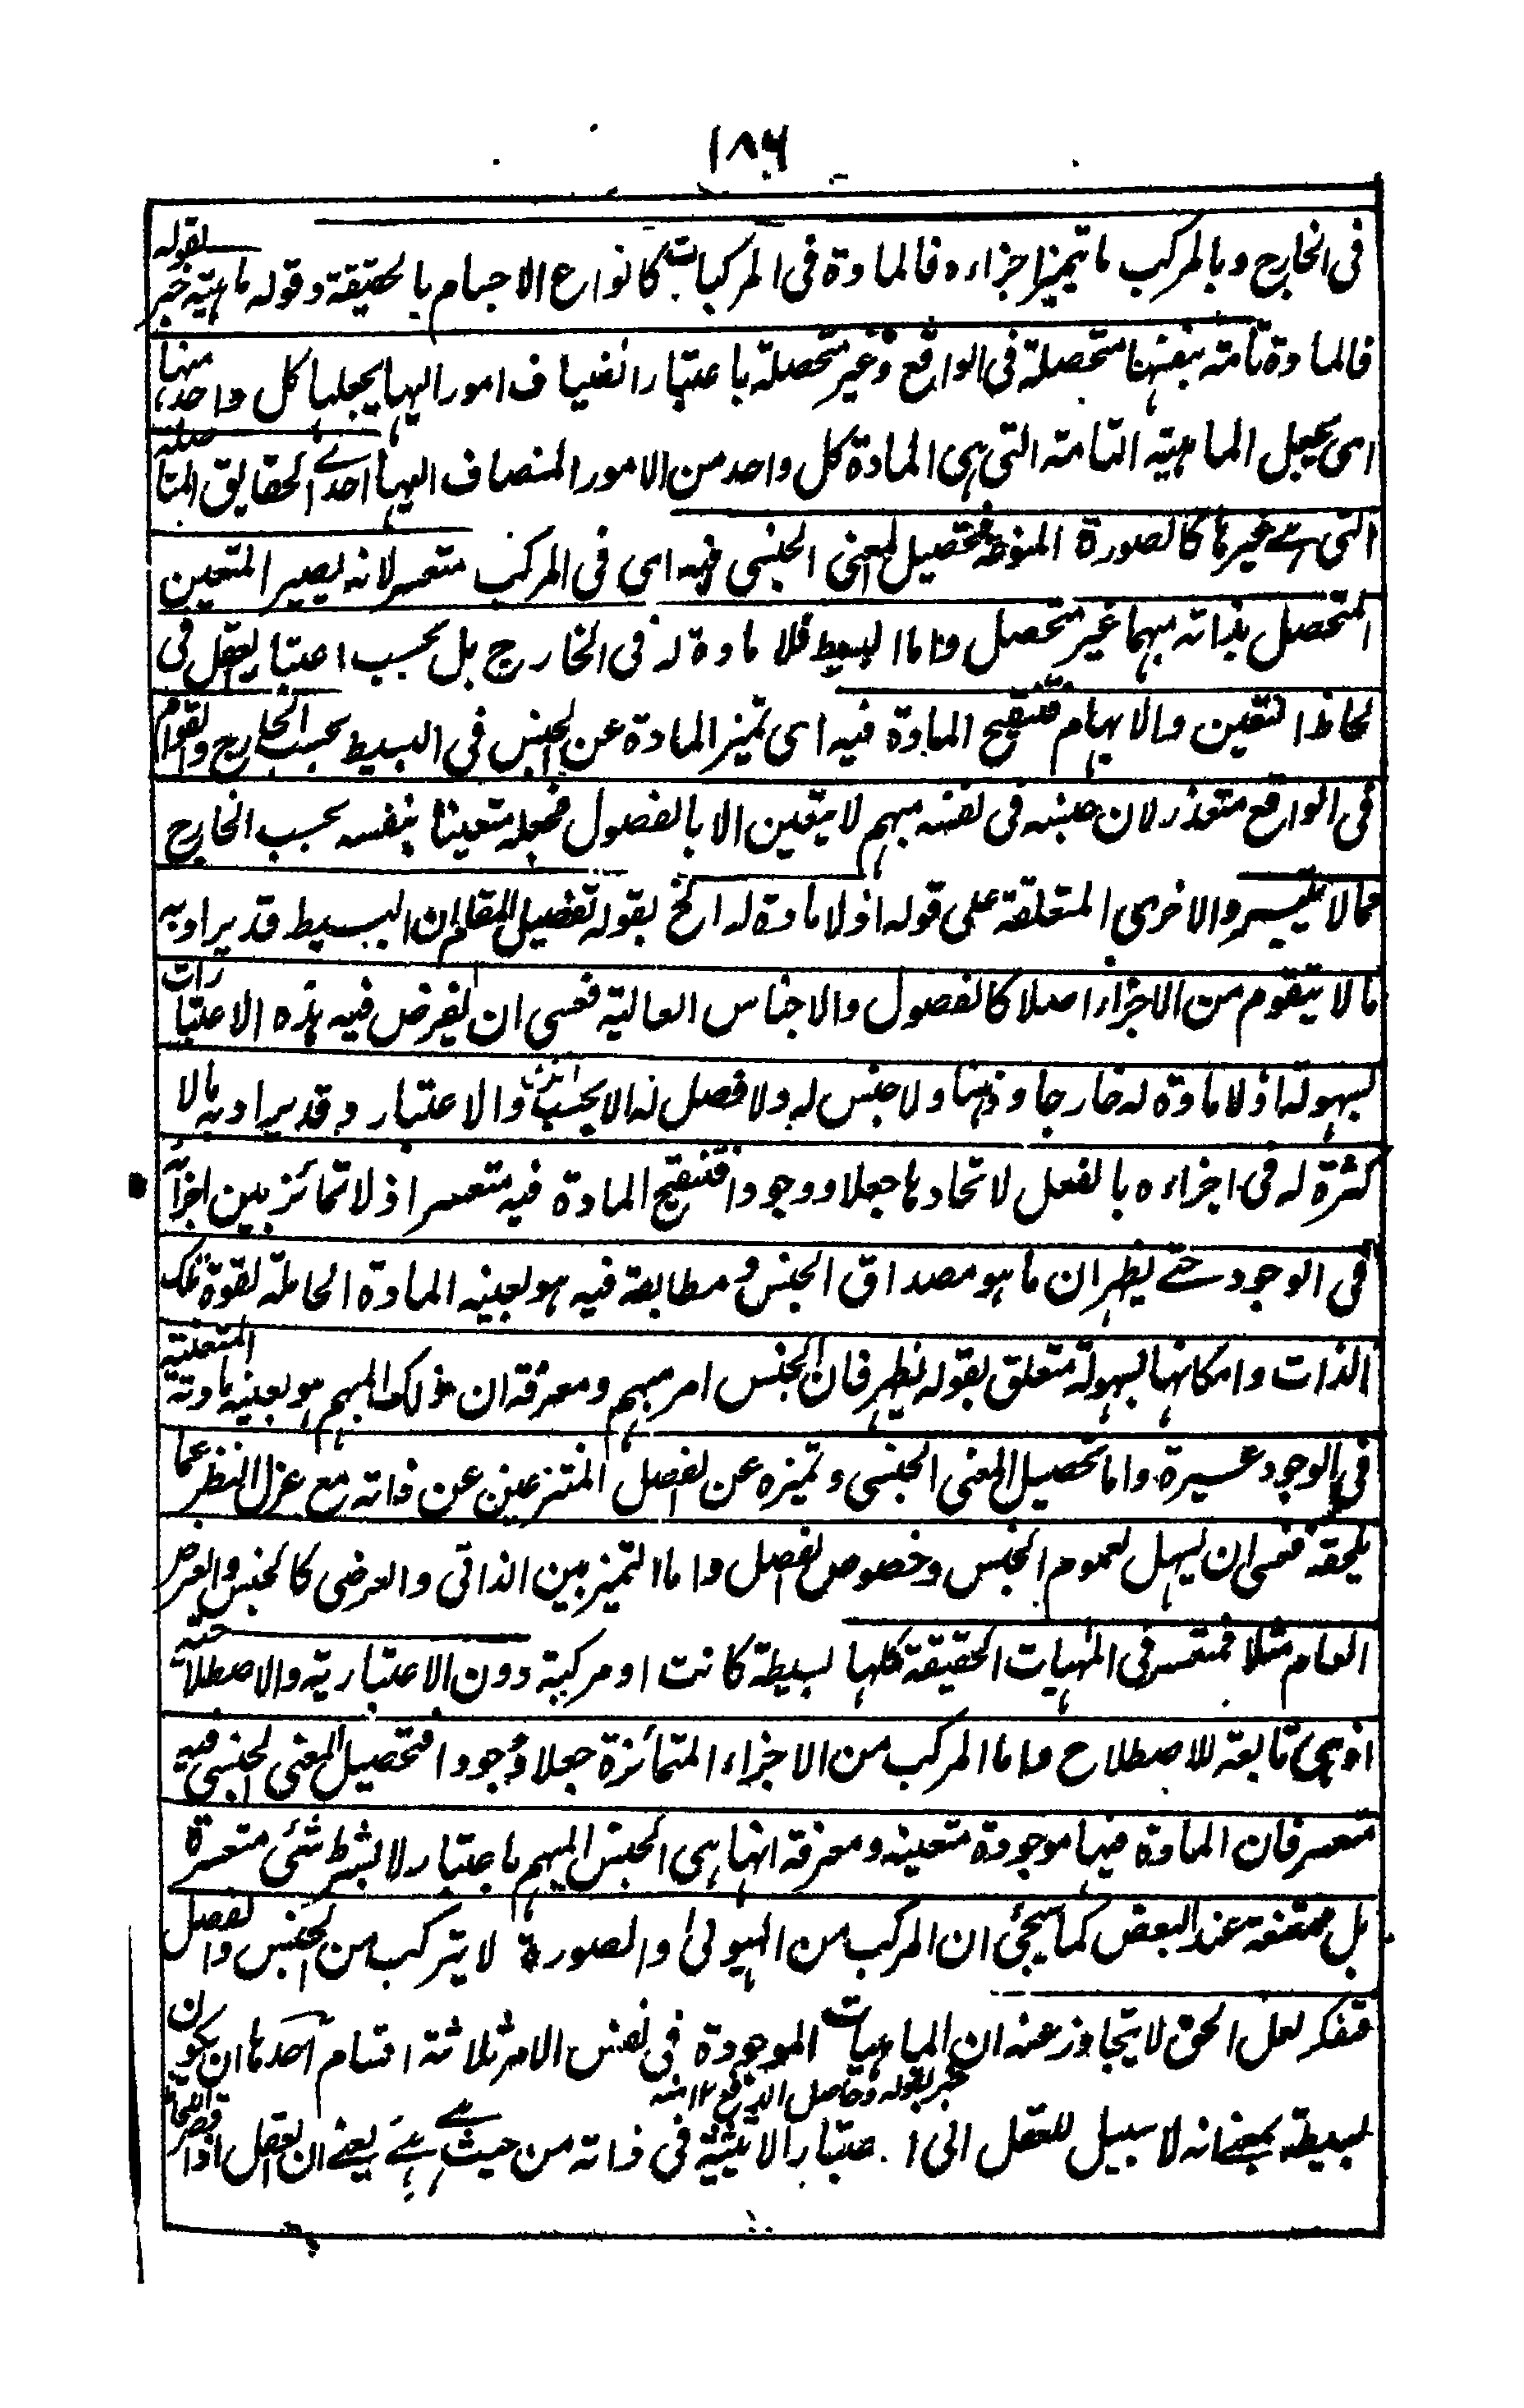 ١٨٦
فى الخارج وبالمركب ما تميز اجزاءه فالمادة فى المركبات كانواع الاجسام بالحقيقة وقوله ماهيته خبر لقوله
فالمادة تامته بنفسها متحصلة فى الواقع وغير متحصلة باعتبار انضياف امور اليها يجعلها كل واحد منها
اى يجعل الماهيته التامته التى هى المادة كل واحد من الامور المنضاف اليها احدے الحقايق المتاصلة
التى غيرها كالصورة المنوطة فتحصيل المعنى الجنسى فيه اى فى المركب متعسر لانه يصير المتعين
المتحصل بذاته مبهما غير متحصل واما البسيط فلا مادة له فى الخارج بل بحسب اعتبار العقل فى
لحاظ التعين والابهام فتنقيح المادة فيه اى تميز المادة عن الجنس فى البسيط بحسب الخارج والقوام
فى الواقع متعذر لان جنسه فى نفسه مبهم لا يتعين الا بالفصول فجعله متعينا بنفسه بحسب الخارج
مما لا يتيسر والاخرى المتعلقة على قوله اذ لا مادة له الخ بقوله تفصيل المقام ان البسيط قد يراد به
ما لا يتقوم من الاجزاء اصلا كالفصول والاجناس العالية فعسى ان يفرض فيه هذه الاعتبارات
بسهولة اذ لا مادة له خارجا وذهنا ولا جنس له ولا فصل له الا بحسب والاعتبار وقد يراد به ما لا
كثرة له فى اجزاءه بالفعل لاتحادها جعلا ووجودا فتنقيح المادة فيه متعسر اذ لا تمائز بين اجزائه
فى الوجود حتے يظهر ان ما هو مصداق الجنس ومطابقة فيه هو بعينه المادة الحاملة لقوة تلك
الذات وامكانها بسهولة متعلق بقوله يظهر فان الجنس امر مبهم ومعرفة ان ذلك المبهم هو بعينه مادته المتعينة
فى الوجود عسيرة واما تحصيل المعنى الجنسى وتميزه عن الفصل المنتزعين عن ذاته مع عزل النظر عما
يلحقه فعسى ان يسهل لعموم الجنس وخصوص الفصل واما التميز بين الذاتى والعرضى كالجنس والعرض
العام مثلا فمتعسر فى المهيات الحقيقة كلها بسيطة كانت او مركبة دون الاعتبارية والاصطلاحية
اذ هى تابعة للاصطلاح واما المركب من الاجزاء المتمائزة جعلا ووجودا فتحصيل المعنى الجنسى فيه
متعسر فان المادة فيها موجودة متعينه ومعرفة انها هى الجنس المبهم باعتبار لا بشرط شئى متعسرة
بل ممتنعة عند البعض كما سيجئى ان المركب من الهيولىٰ والصورة لا يتركب من الجنس والفصل
فتفكر لعل الحق لا يتجاوز عنه ان الماهيات الموجودة فى نفس الامر ثلاثة اقسام احدها ان يكون
خبر لقوله وحاصل الدفع ١٢ منه
بسيطة بمعنے انه لا سبيل للعقل الى اعتبار الاثنينية فى ذاته من حيث هے هے يعنے ان العقل اذا قصر